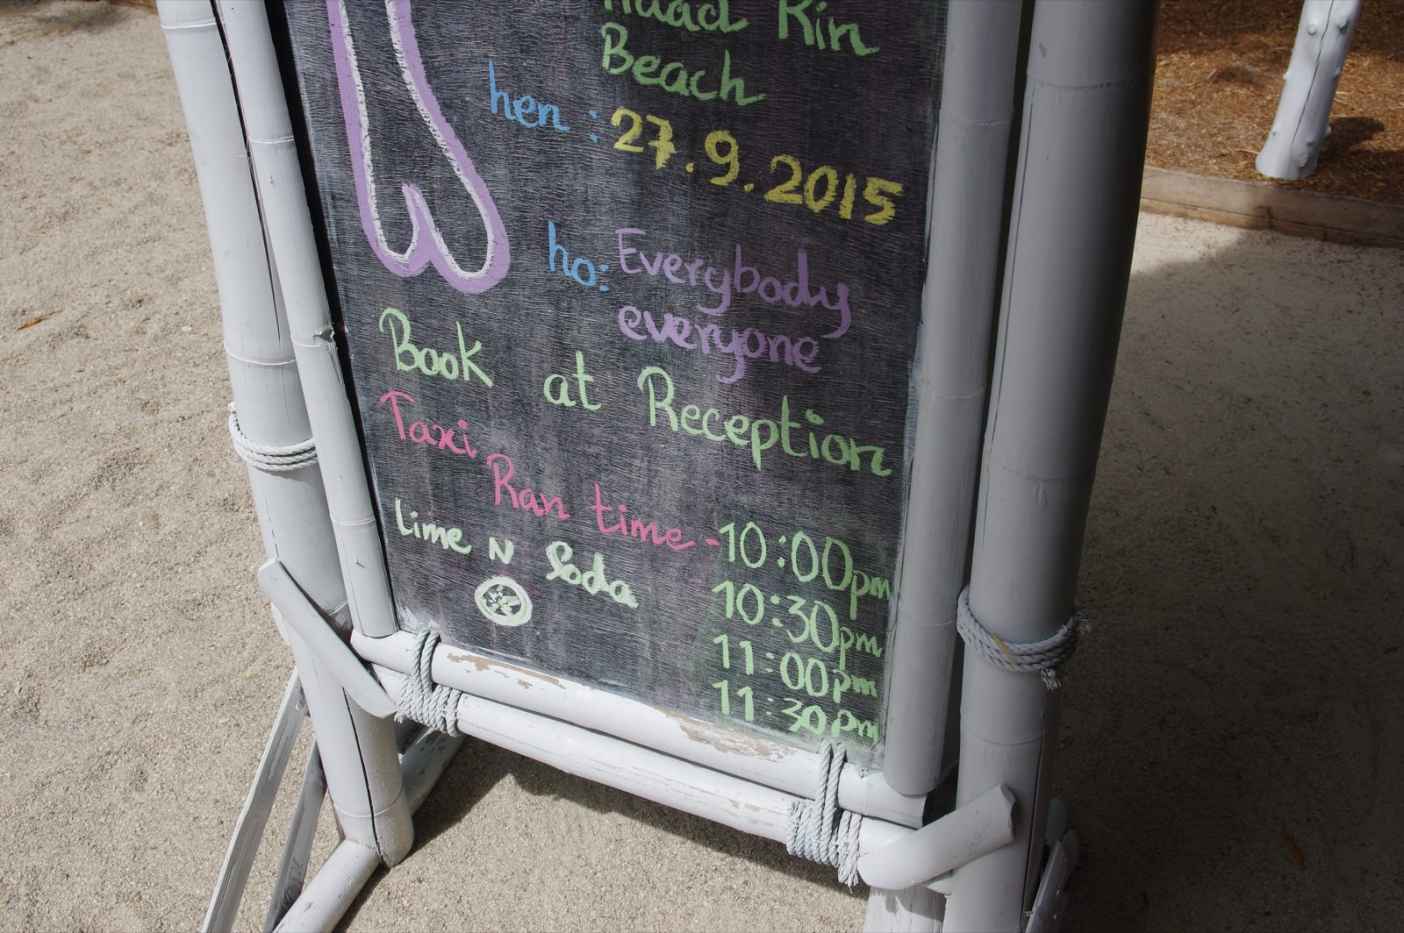 Haad Rin
Beach
hen : 27.9.2015
ho: Everybody
everyone
Book at Reception
Taxi
Ran time - 10:00pm
10:30pm
11:00pm
11:30pm
Lime N Soda